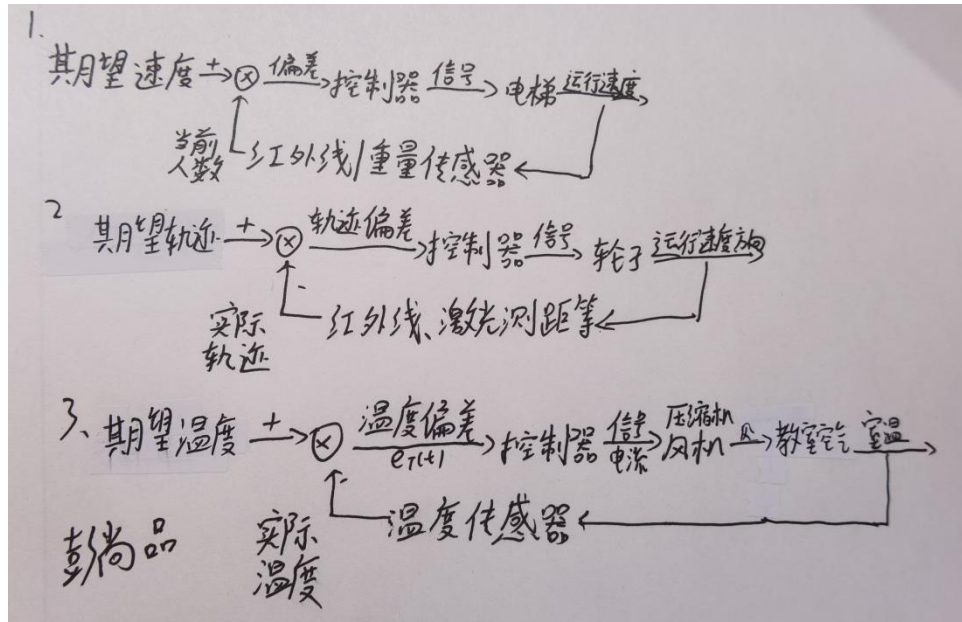 1.
期望速度 + ⊗ 偏差 控制器 信号 电梯 运行速度
当前人数 - 红外线/重量传感器
2
期望轨迹 + ⊗ 轨迹偏差 控制器 信号 轮子 运行速度方向
-
实际轨迹 红外线、激光测距等
3、期望温度 + ⊗ 温度偏差 e_T(t) 控制器 信号 电流 压缩机 风机 教室空气 室温
-
实际温度 温度传感器
彭尚品